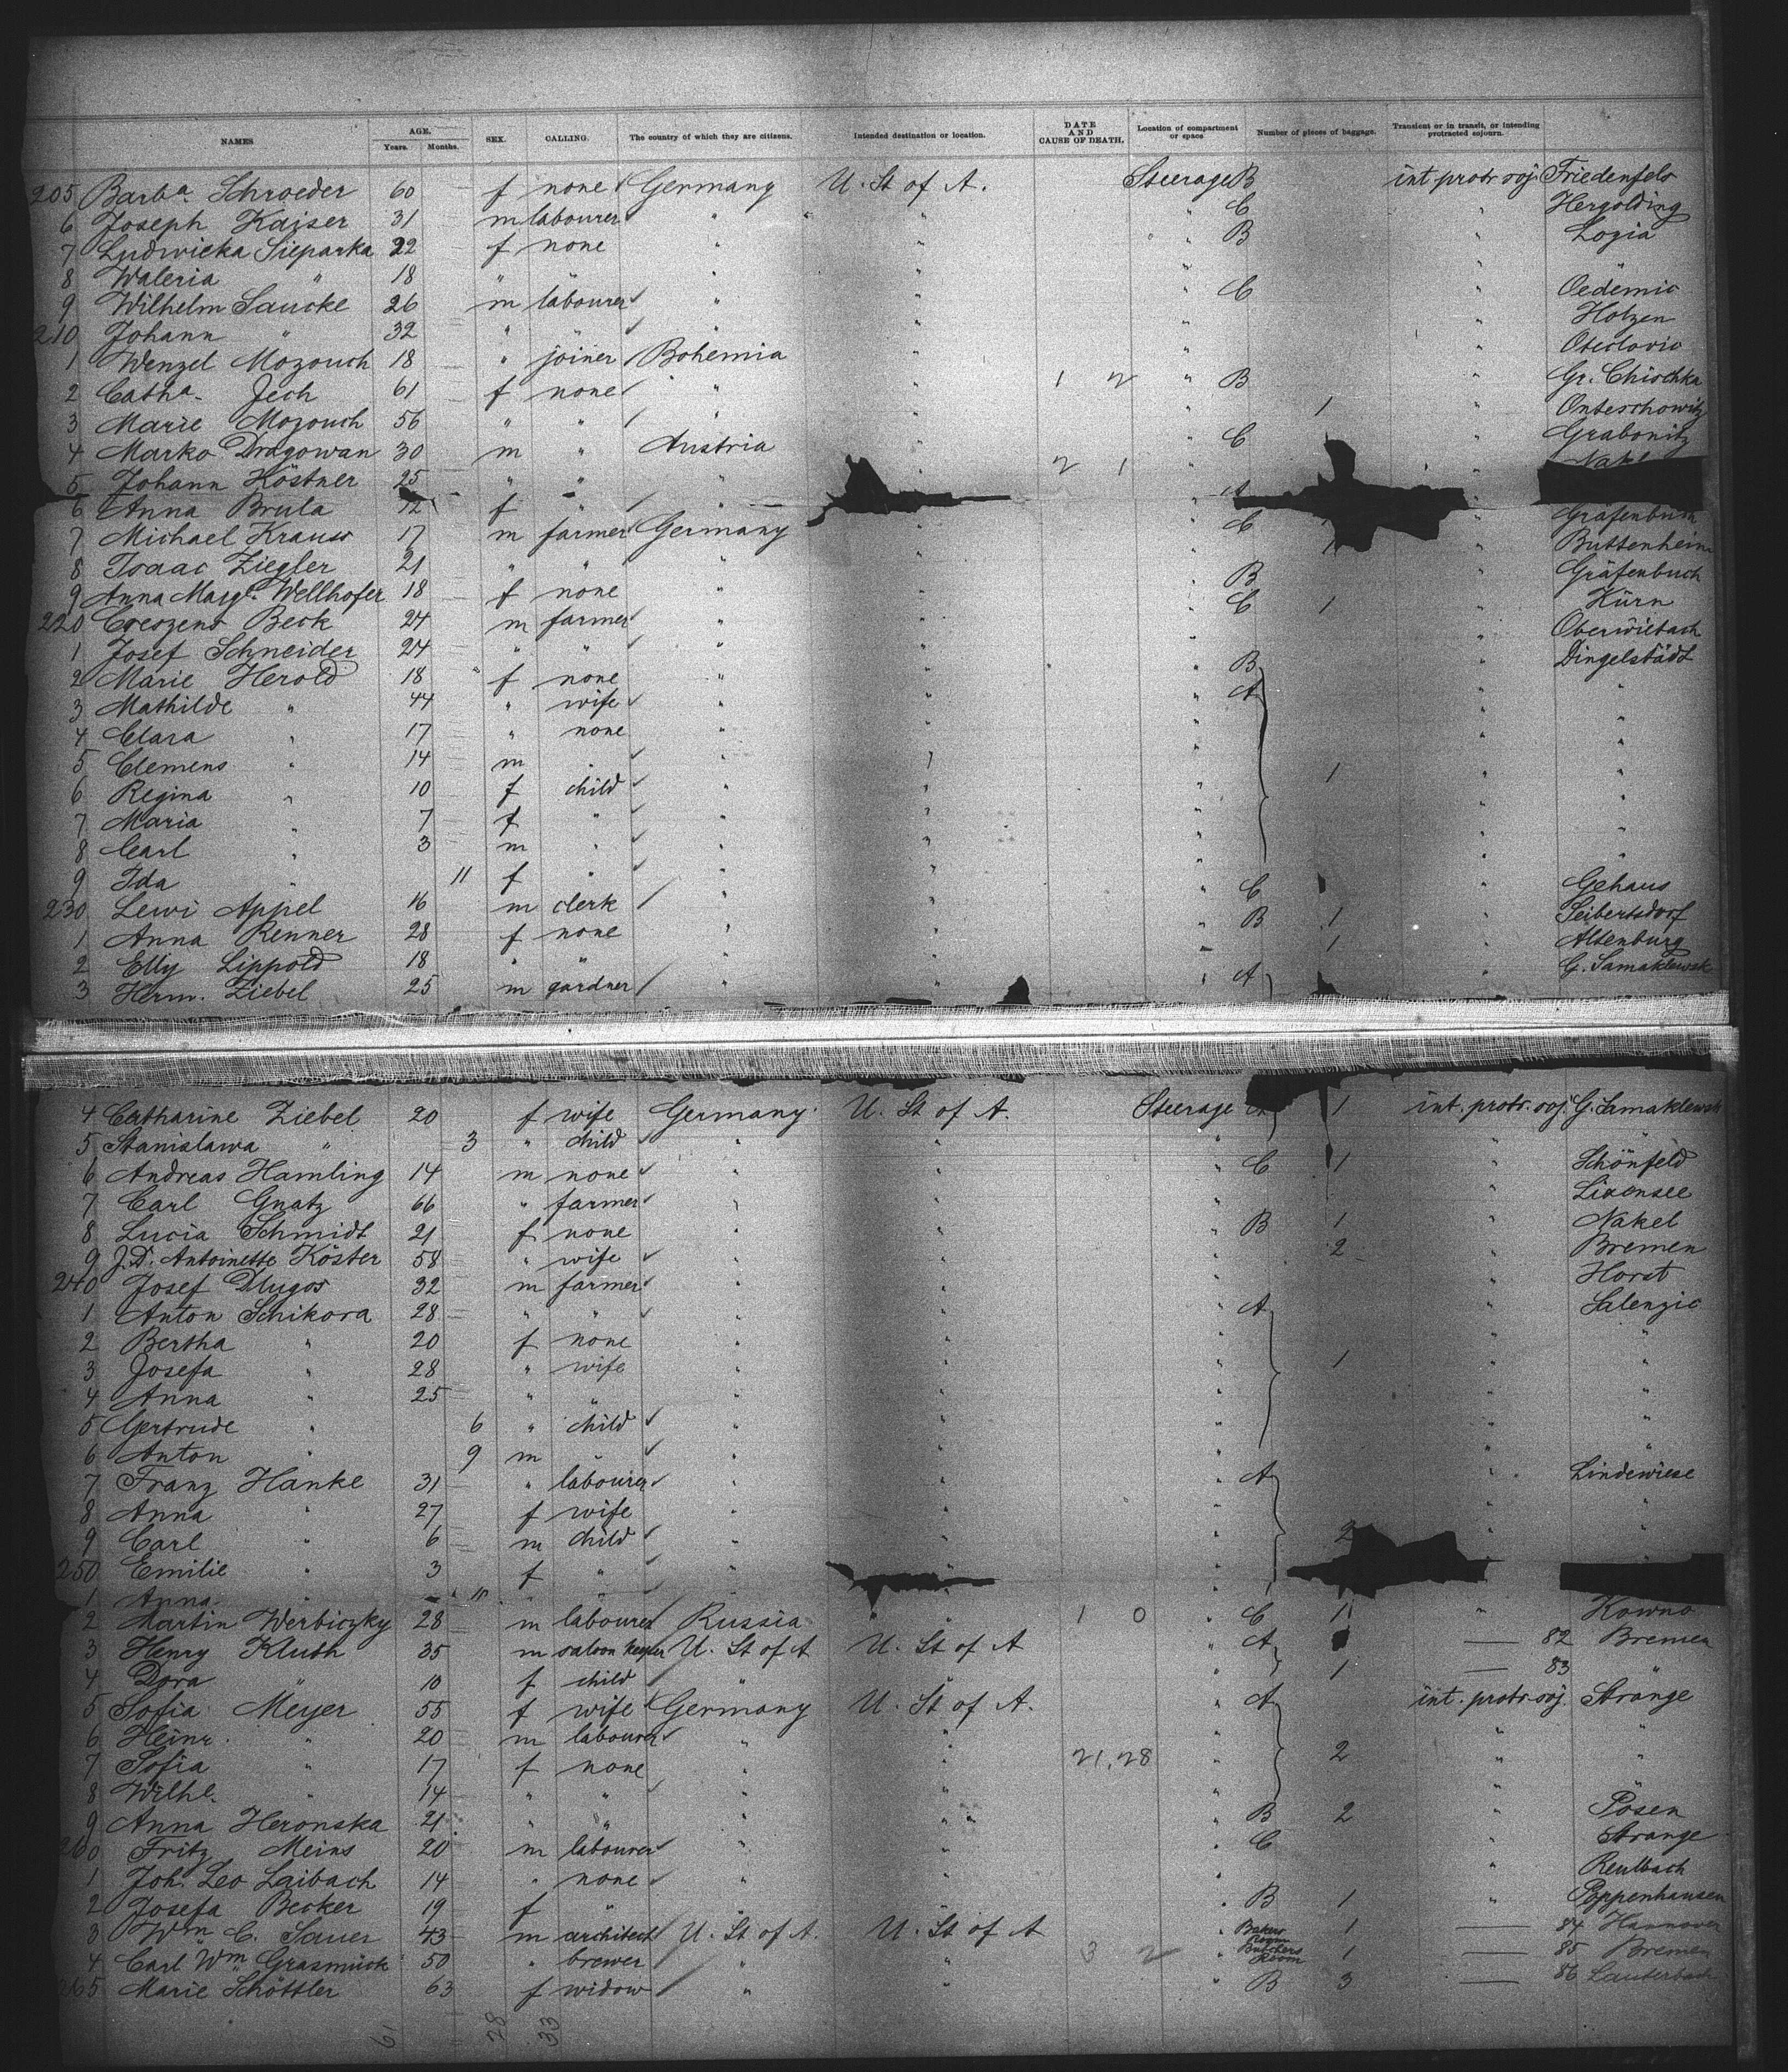 NAMES AGE. Years. Months. SEX. CALLING. The country of which they are citizens. Intended destination or location. DATE AND CAUSE OF DEATH. Location of compartment or space Number of pieces of baggage. Transient or in transit, or intending protracted sojourn.
205 Barba. Schroeder 60 f none Germany U. St of A. Steerage B int. protr. soj. Friedenfels
6 Joseph Kaiser 31 m labourer " " " C " Hergolding
7 Ludwicka Sieparka 22 f none " " " B " Logia
8 Waleria " 18 " " " " " "
9 Wilhelm Saucke 26 m labourer " " " C " Oedemic
210 Johann " 32 " " " " " " Holzen
1 Wenzel Mozouch 18 " joiner Bohemia " " "
2 Catha. Jech 61 f none " " 1 2 " B " Gr. Chischka
3 Marie Mozouch 56 " " " " " 1 " Onteschowitz
4 Marko Dragowan 30 m " Austria " " C " Grabonitz
5 Johann Köstner 25 " " " 2 1 "
6 Anna Brula 12 f " " "
7 Michael Krauss 17 m farmer Germany " " C "
8 Isaac Ziegler 21 " " " " " Buttenheim
9 Anna Margr. Wellhofer 18 f none " " " B " Gräfenbuch
220 Creszens Beck 24 m farmer " " " C 1 " Kürn
1 Josef Schneider 24 " " " " " " Oberwiebach
2 Marie Herold 18 f none " " " B " Dingelstädt
3 Mathilde " 44 " wife " " " A " "
4 Clara " 17 " none " " " " "
5 Clemens " 14 m " " " " " "
6 Regina " 10 f child " " " 1 " "
7 Maria " 7 f " " " " " "
8 Carl " 3 m " " " " " "
9 Ida " 11 f " " " " " "
230 Lewi Appel 16 m clerk " " " C " Gehaus
1 Anna Renner 28 f none " " " B 1 " Seibertsdorf
2 Elly Lippold 18 " " " " " 1 " Altenburg
3 Herm. Ziebel 25 m gardner " " " A " G. Samaklewsk
4 Catharine Ziebel 20 f wife Germany U. St of A. Steerage A 1 int. protr. soj. G. Samaklewsk
5 Stanislawa " 3 " child " " " " "
6 Andreas Hamling 14 m none " " " C 1 " Schönfeld
7 Carl Gnatz 66 " farmer " " " " Lixensee
8 Lucia Schmidt 21 f none " " " B 1 " Nakel
9 J.D. Antoinette Köster 58 " wife " " " 2 " Bremen
240 Josef Dlugos 32 m farmer " " " " Horst
1 Anton Schikora 28 " " " " " A " Salenzic
2 Bertha " 20 f none " " " " "
3 Josefa " 28 " wife " " " 1 " "
4 Anna " 25 " " " " " " "
5 Gertrude " 6 " child " " " " "
6 Anton " 9 m " " " " " "
7 Franz Hanke 31 " labourer " " " A " Lindewiese
8 Anna " 27 f wife " " " " "
9 Carl " 6 m child " " " 2 " "
250 Emilie " 3 f " " " "
1 Anna " " " "
2 Martin Werbiczky 28 m labourer Russia " 1 0 " C 1 " Kowno
3 Henry Kluth 35 m saloon keeper U. St of A U. St of A " A — 82 Bremen
4 Dora " 10 f child " 1 — 83 "
5 Sofia Meyer 55 f wife Germany U. St of A. " A int. protr. soj. Strange
6 Heinr. " 20 m labourer " " " " "
7 Sofia " 17 f none " " 21,28 " 2 " "
8 Wilhl. " 14 " " " " " "
9 Anna Heronska 21 " " " " " B 2 " Posen
260 Fritz Meins 20 m labourer " " " C " Strange
1 Joh. Leo Laibach 14 " none " " " " Reulbach
2 Josefa Becker 19 f " " " " B 1 " Poppenhausen
3 Wm C. Sauer 43 m architect U. St of A. U. St of A " Bakers Room 1 — 84 Hannover
4 Carl Wm Grasmück 50 " brewer " " 3 2 " Butchers Room 1 — 85 Bremen
265 Marie Schöttler 63 f widow " " B 3 — 86 Lauterbach
61 28 33